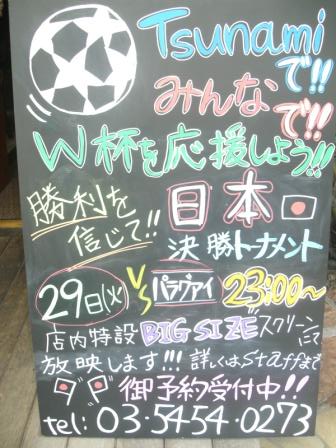 Tsunamiで!!
みんなで!!
W杯を応援しよう!!
勝利を信じて!!
日本
決勝トーナメント
29日(火) VS パラグァイ 23:00〜
店内特設 BIG SIZE スクリーンにて
放映します!!! 詳しくはstaffまで
御予約受付中!!
tel: 03-5454-0273